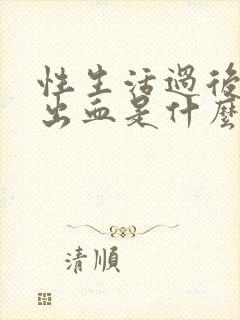 性生活過後
出血是什麼
清順